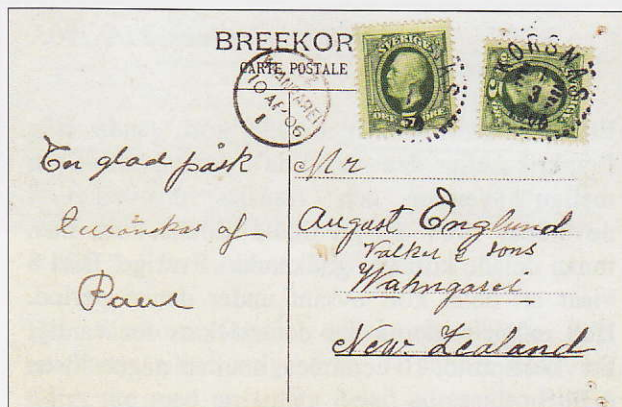 BREFKORT
CARTE POSTALE
SVERIGE
WHANGAREI
10 AP 06
1
KORSNÄS
3
En glad påsk
tillönskas af
Paul
Mr
August Englund
Valker & sons
Wahngarei
New Zealand